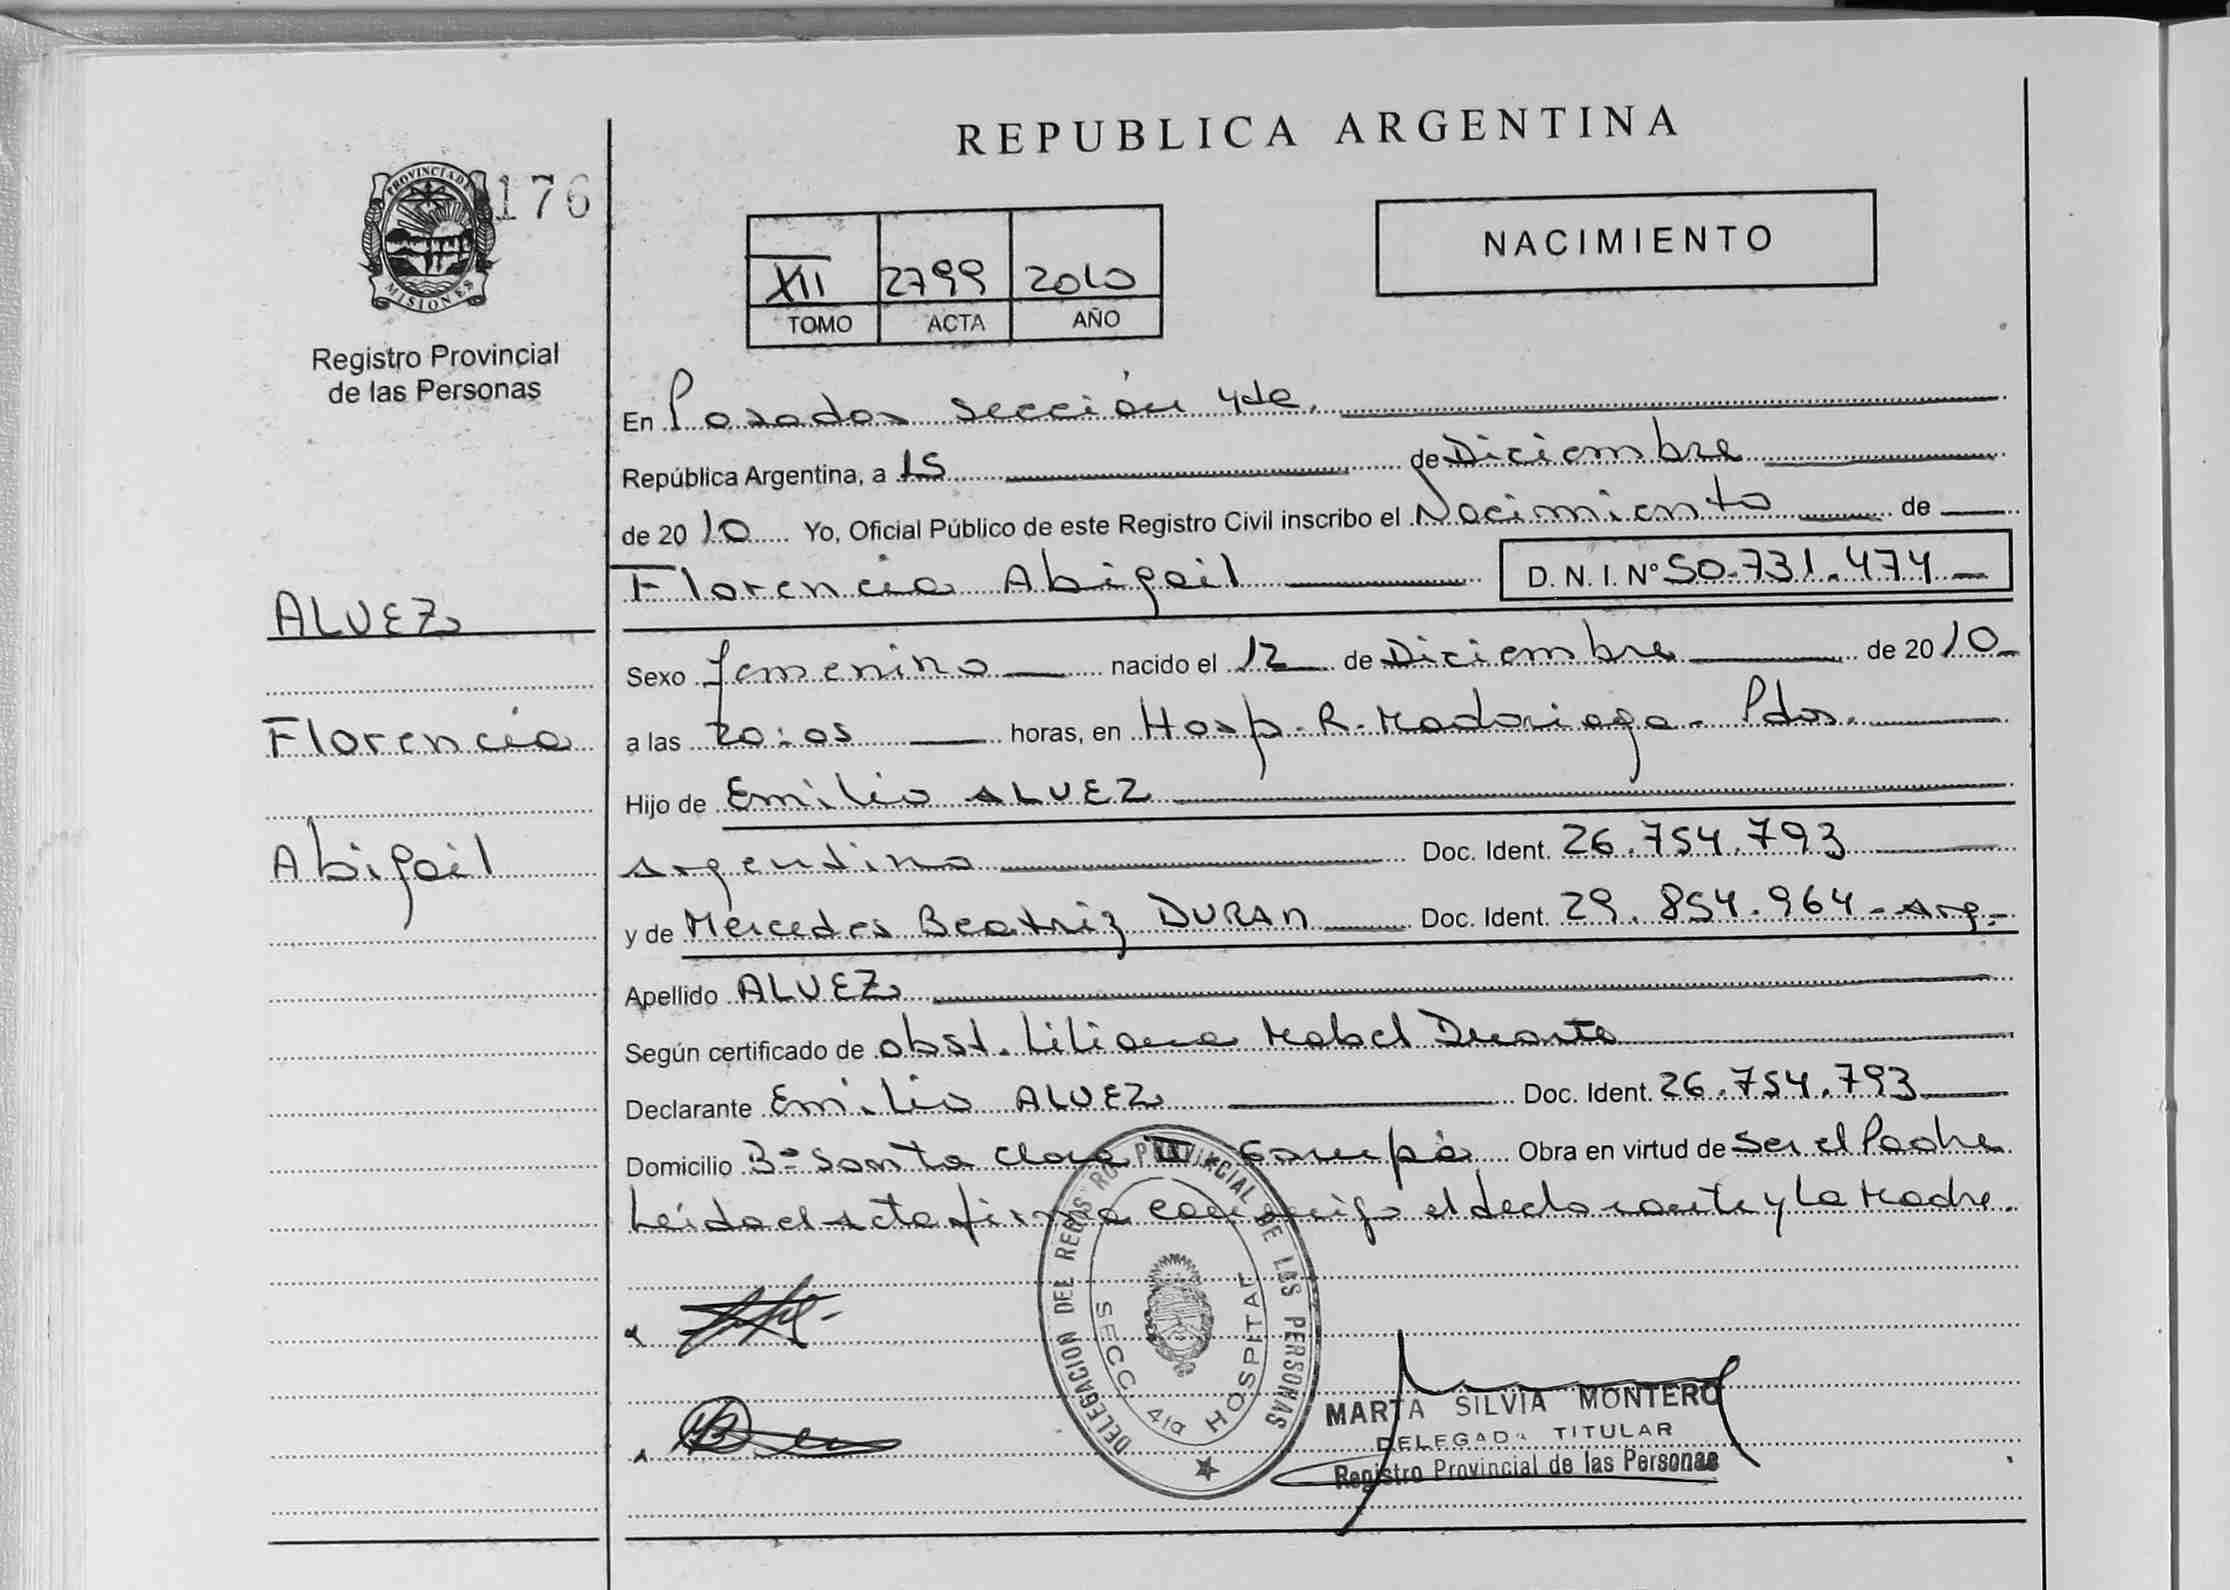 REPUBLICA ARGENTINA
PROVINCIA DE MISIONES
176
Registro Provincial
de las Personas
XII 2799 2010
TOMO ACTA AÑO
NACIMIENTO
En Posadas Sección 4ta.
República Argentina, a 15 de Diciembre
de 2010 Yo, Oficial Público de este Registro Civil inscribo el Nacimiento de
Florencia Abigail D. N. I. Nº 50.731.474
ALVEZ
Florencia
Abigail
Sexo femenino nacido el 12 de Diciembre de 2010
a las 20:05 horas, en Hosp. R. Madariaga - Pdas.
Hijo de Emilio ALVEZ
Argentino Doc. Ident. 26.754.793
y de Mercedes Beatriz DURAN Doc. Ident. 29.854.964 - Arg.
Apellido ALVEZ
Según certificado de obst. Liliana Mabel Duarte
Declarante Emilio ALVEZ Doc. Ident. 26.754.793
Domicilio Bº Santa Clara II - Garupá Obra en virtud de Ser el Padre
Leída el Acta firma conmigo el declarante y La Madre.
DELEGACION DEL REGISTRO PROVINCIAL DE LAS PERSONAS
SECC 4ta HOSPITAL
MARTA SILVIA MONTERO
DELEGADA TITULAR
Registro Provincial de las Personas